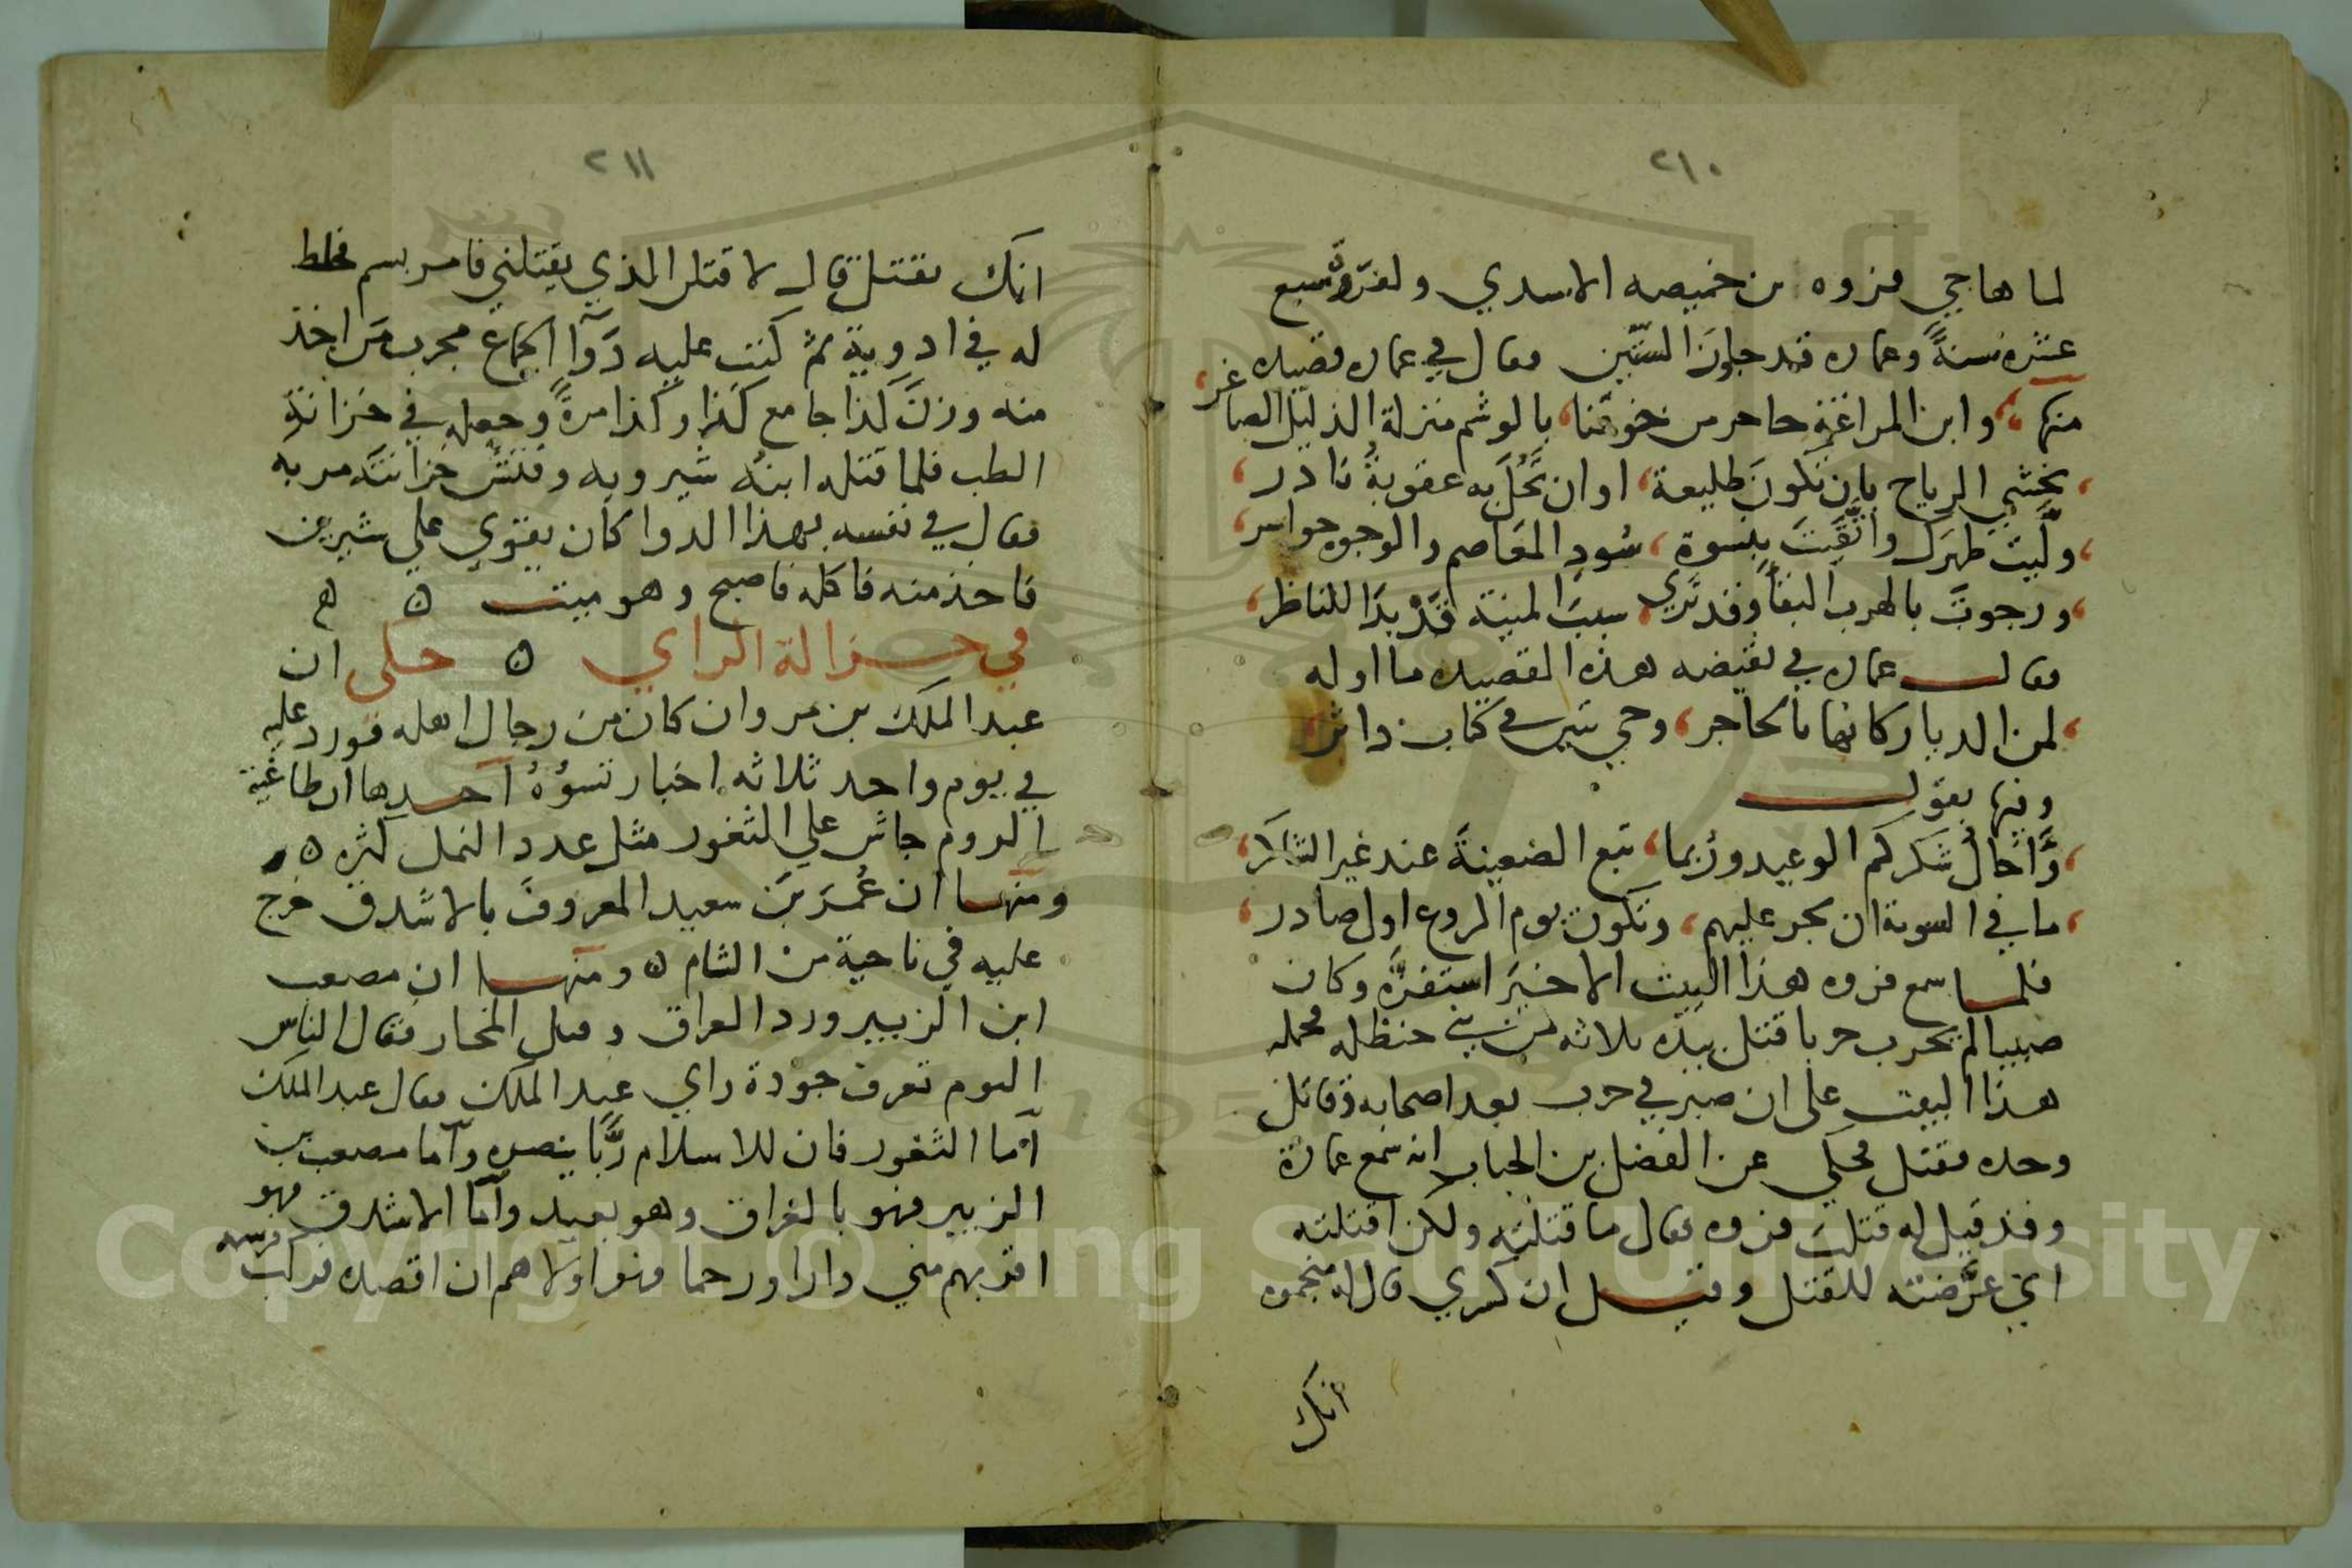 ٢١٠
لما هاجي فروه بن خميصه الاسدي ولفروة سبع
عشره سنةً وعماره قد جاوزَ الستين فقال في عماره قصيده
منها، وابن المراغة حاحر من خوفنا، بالوشم منزلة الذليل الصاغر،
، يخشي الرياح بان تكونَ طليعة، او ان تَحُلَّ به عقوبةُ نادر،
، ولَّيت ظهرك واتَّقيتَ بنسوة، سُودِ المعَاصم والوجوه حواسر،
، ورجوتَ بالهرب البقا وقد تري، سببَ المنية قَدْ بدَا للناظر،
فقال عماره في نقيضه هذه القصيده ما اوله
، لمن الديار كانها بالحاجر، وحي تبير في كتاب داثر،
وفيها يقول
، وَاخَالُ شكركم الوعيد وربما، تبع الضعينةَ عند غير الشاكر،
، ما في السوية ان تجر عليهم، وتكون يوم الروع اول صادر،
فلما سمع فروه هذا البيت الاخيرَ استفزَّه وكان
صبيا لم يحرب حربا قتل بيده ثلاثه من بني حنظله فحمله
هذا البيت على ان صبر في حرب بعد اصحابه وقاتل
وحده فقتل فحكي عن الفضل بن الحباب انه سمع عمارة
وقد قيل له قتلت فروه فقال ما قتلته ولكن اقتلته
اي عرَّضته للقتل وقيل ان كسري قال له منجموه
انك
٢١١
انك تقتل قال لاقتلن الذي يقتلني فامر بسم فخلط
له في ادوية ثم كتب عليه دَوآ الجماع مجرب مَن اخذ
منه وزنَ كذا جامع كَذا وكذا مرةً وجعله في خزانة
الطب فلما قتله ابنهُ شيرويه وفتش خزانته مر به
فقال في نفسه بهذا الدوا كان يقوي علي شيرين
فاخذ منه فاكله فاصبح وهو ميت ه ه
في جزالة الراي ه حكى ان
عبد الملك بن مروان كان من رجال اهله فورد عليه
في يوم واحد ثلاثه اخبار تسوُهُ احدها ان طاغية
الروم جاش علي الثغور مثل عدد النمل كثره ه
ومنها ان عُمرَ بنَ سعيد المعروفَ بالاشدق خرج
عليه في ناحية من الشام ه ومنها ان مصعب
ابن الزبير ورد العراق وقتل المختار فقال الناس
اليوم تعرف جودة راي عبد الملك فقال عبد الملك
اما الثغور فان للاسلام رَبًّا ينصره واما مصعب بن
الزبير فهو بالعراق وهو بعيد واما الاشدق فهو
اقربهم مني دارا ورحما فهو اولاهم ان اقصده فركب فرسه
Copyright © King Saud University
195